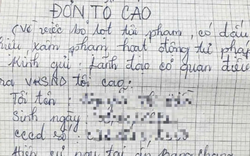 ĐƠN TỐ CÁO
(Về việc bỏ lọt tội phạm, có dấu
hiệu xâm phạm hoạt động tư pháp
Kính gửi: Lãnh đạo cơ quan điều
tra VKSND tối cao:
Tôi tên:
Sinh ngày
cccd số:
Hiện cư ngụ tại